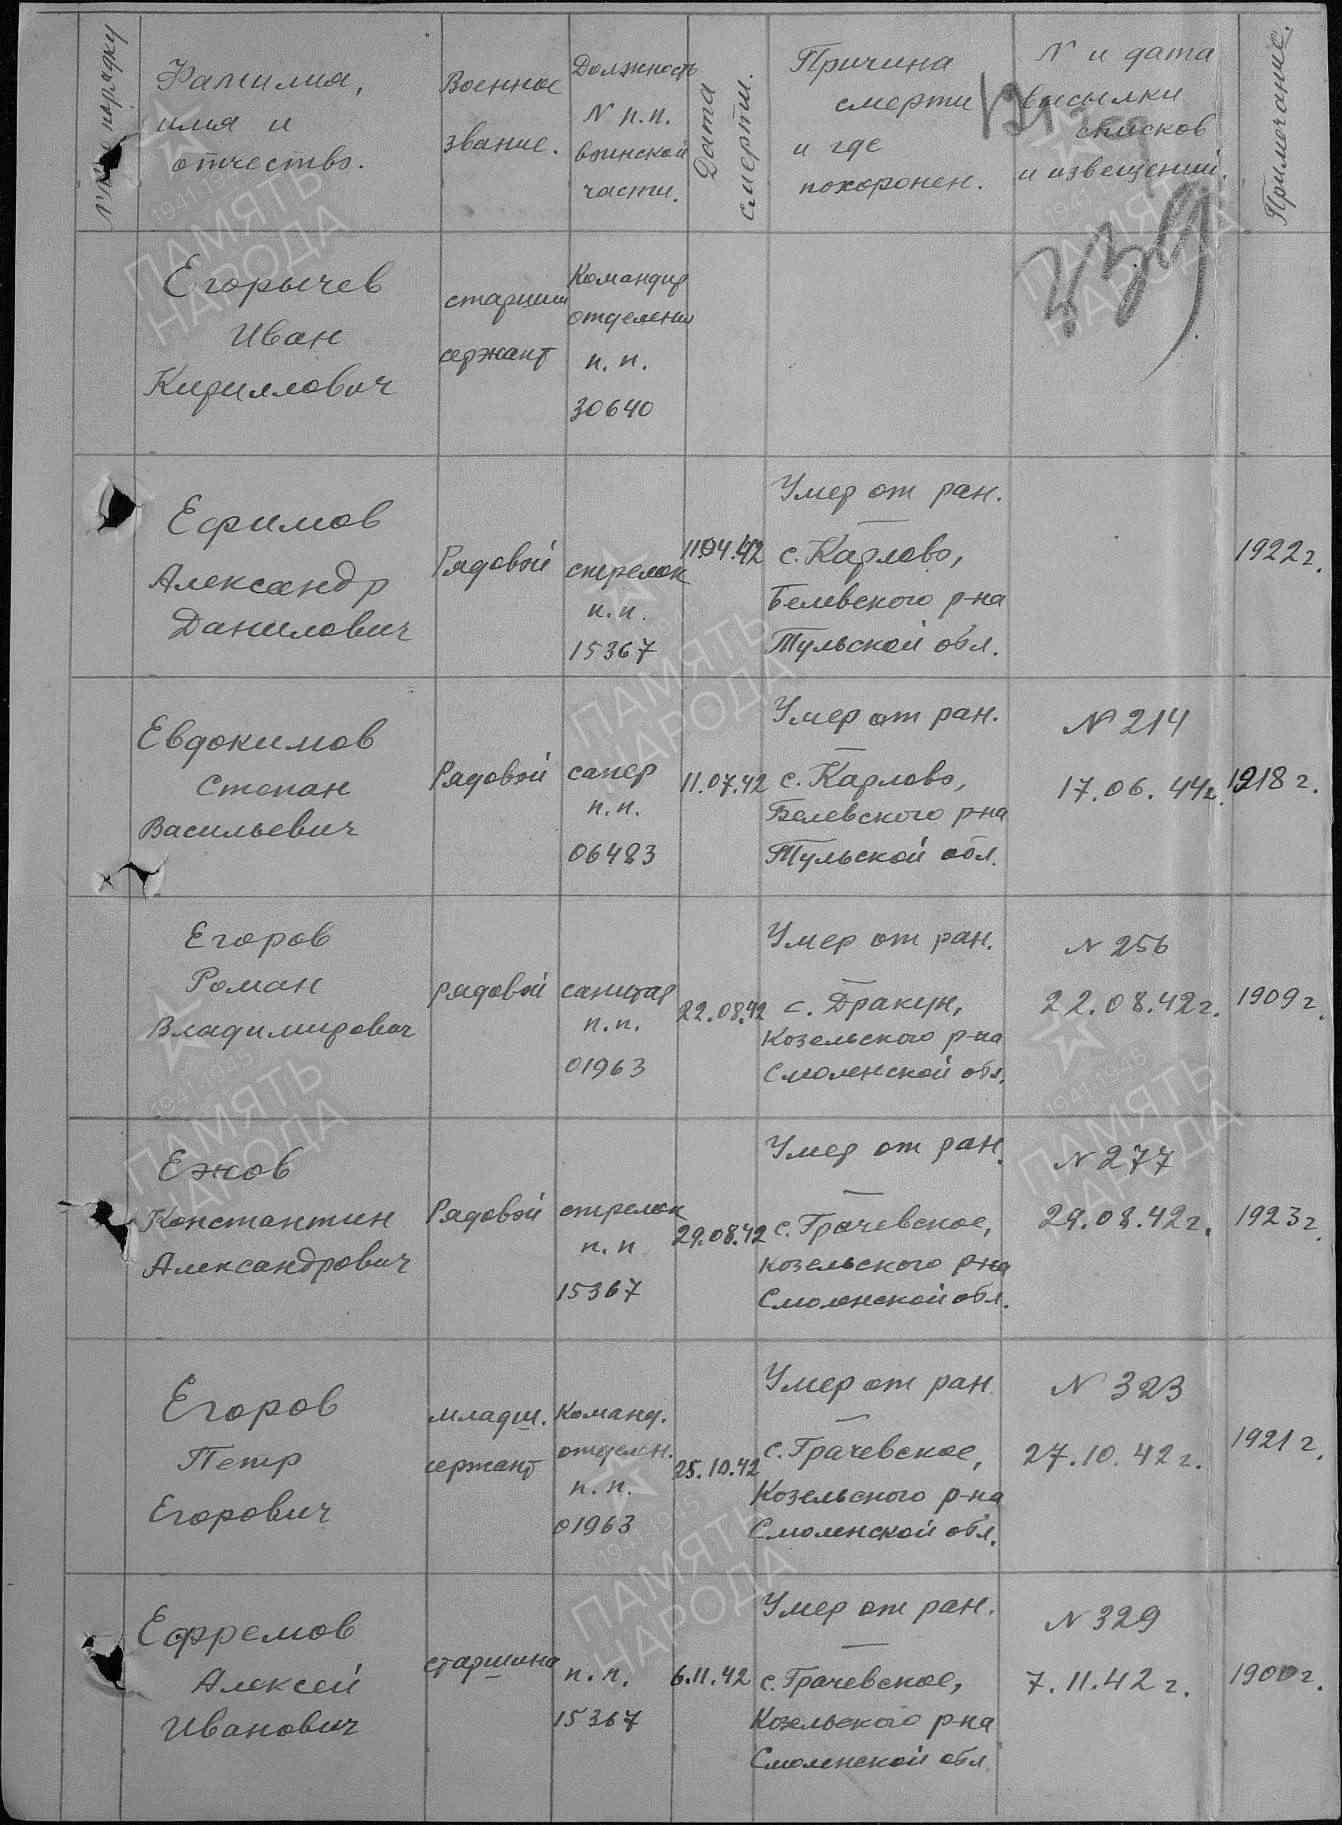 № по порядку
Фамилия,
имя и
отчество.
Военное
звание.
Должность
N п.п.
воинской
части.
Дата
смерти.
Причина
смерти
и где
похоронен.
N и дата
высылки
списков
и извещений.
Примечание.
339
Егорычев
Иван
Кириллович
старший
сержант
Командир
отделения
п.п.
30640
Ефимов
Александр
Данилович
Рядовой
стрелок
п.п.
15367
11.04.42
Умер от ран.
с. Карлово,
Белевского р-на
Тульской обл.
1922г.
Евдокимов
Степан
Васильевич
Рядовой
сапер
п.п.
06483
11.07.42
Умер от ран.
с. Карлово,
Белевского р-на
Тульской обл.
N 214
17.06.44г.
1918г.
Егоров
Роман
Владимирович
рядовой
санитар
п.п.
01963
22.08.42
Умер от ран.
с. Дракун,
Козельского р-на
Смоленской обл.
N 256
22.08.42г.
1909г.
Ежов
Константин
Александрович
Рядовой
стрелок
п.п
15367
29.08.42
Умер от ран.
с. Грачевское,
Козельского р-на
Смоленской обл.
N 277
29.08.42г.
1923г.
Егоров
Петр
Егорович
младш.
сержант
Команд.
отделен.
п.п.
01963
25.10.42
Умер от ран
с. Грачевское,
Козельского р-на
Смоленской обл.
N 323
27.10.42г.
1921г.
Ефремов
Алексей
Иванович
старшина
п.п.
15367
6.11.42
Умер от ран.
с. Грачевское,
Козельского р-на
Смоленской обл
N 329
7.11.42г.
1900г.
1941-1945
ПАМЯТЬ
НАРОДА